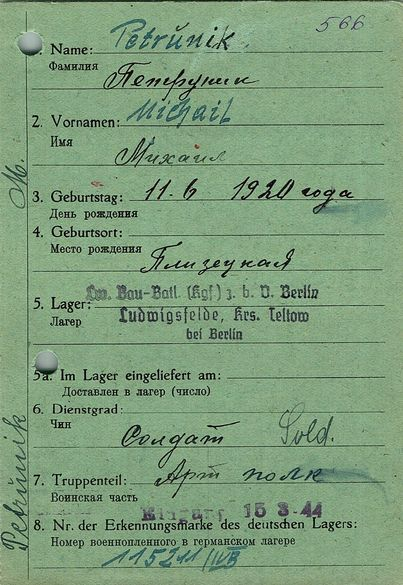 566
1. Name: Petrŭnik
Фамилия Петруник
2. Vornamen: Michail
Имя Михаил
3. Geburtstag: 11.6 1920 года
День рождения
4. Geburtsort:
Место рождения Плизецкая
5. Lager: Lw. Bau-Batl. (Kgf) z. b. V. Berlin
Лагер Ludwigsfelde, Krs. Teltow
bei Berlin
5a. Im Lager eingeliefert am:
Доставлен в лагер (число)
6. Dienstgrad:
Чин Солдат Sold.
7. Truppenteil: Арт полк
Воинская часть
15-3-44
8. Nr. der Erkennungsmarke des deutschen Lagers:
Номер военнопленного в германском лагере
115211/IVB
Petrŭnik M.